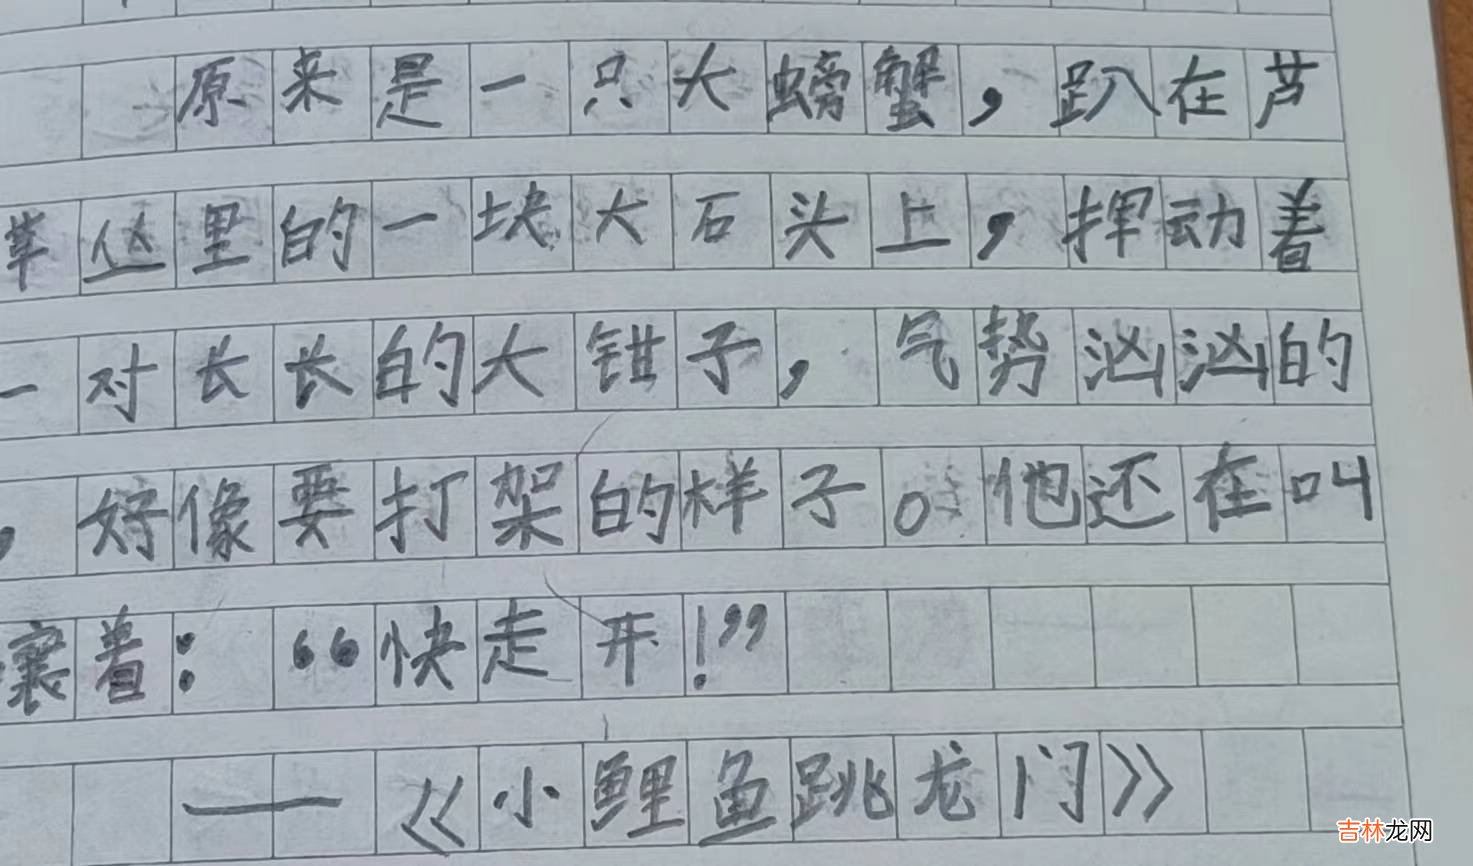 原来是一只大螃蟹，趴在芦
苇丛里的一块大石头上，挥动着
一对长长的大钳子，气势汹汹的
，好像要打架的样子。他还在叫
嚷着：“快走开！”
——《小鲤鱼跳龙门》
吉林龙网